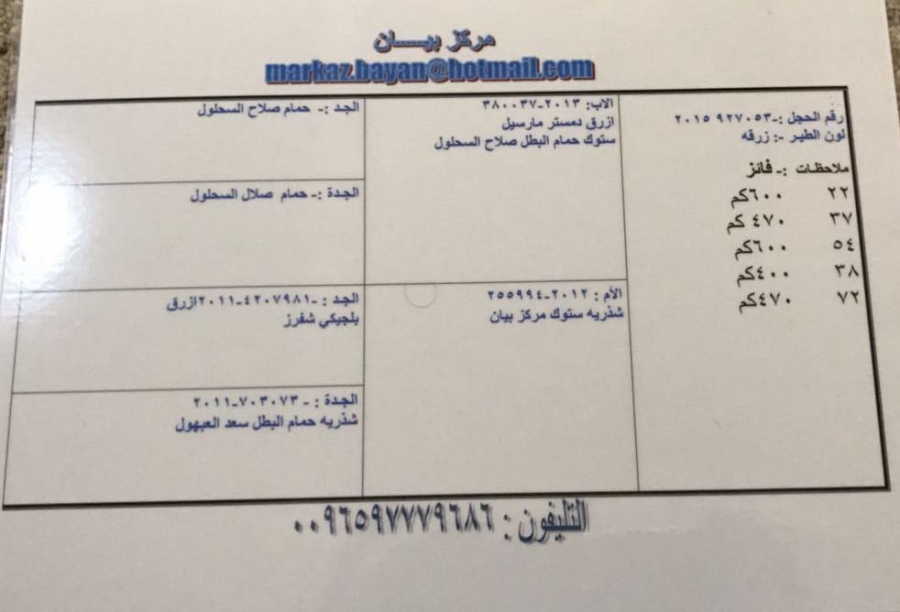 مركز بيـــان
markaz.bayan@hotmail.com
رقم الحجل :-٩٢٧٠٥٣ ٢٠١٥
لون الطير :- زرقه
ملاحظات :- فائز
٢٢ ٦٠٠كم
٣٧ ٤٧٠ كم
٥٤ ٦٠٠كم
٣٨ ٤٠٠كم
٧٢ ٤٧٠كم
الاب: ٢٠١٣-٣٨٠٠٣٧
ازرق دمستر مارسيل
ستوك حمام البطل صلاح السحلول
الأم : ٢٠١٢-٢٥٥٩٩٤
شذريه ستوك مركز بيان
الجد :- حمام صلاح السحلول
الجدة :- حمام صلال السحلول
الجد : -٤٢٠٧٩٨١-٢٠١١ازرق
بلجيكي شفرز
الجدة : - ٧٠٣٠٧٣-٢٠١١
شذريه حمام البطل سعد العبهول
التليفون : ٠٠٩٦٥٩٧٧٧٩٦٨٦